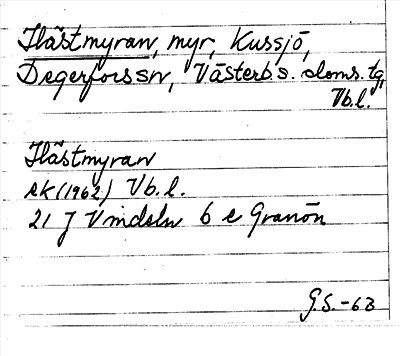 Flästmyran, myr, Kussjö,
Degerfors sn, Västerb:s. doms. tg,
Vb.l.
Flästmyran
ek (1962) Vb.l.
21 J Vindeln 6 e Granön
G.S.-63